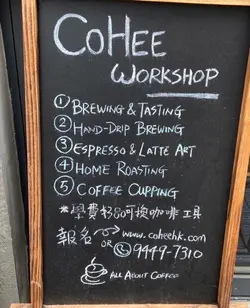 COHEE
WORKSHOP
① BREWING & TASTING
② HAND-DRIP BREWING
③ ESPRESSO & LATTE ART
④ HOME ROASTING
⑤ COFFEE CUPPING
*學費$80可換咖啡工具
報名 → www.coheehk.com
OR 9449-7310
ALL ABOUT COFFEE